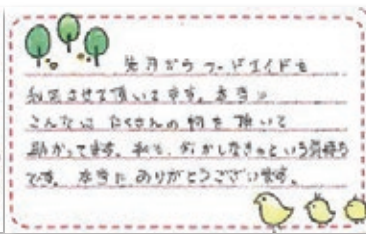 先月からフードエイドを
利用させて頂いてます。本当に
こんなに たくさんの物を 頂いて
助かってます。私も、がしなきゃという気持ち
です。本当に ありがとうございます。